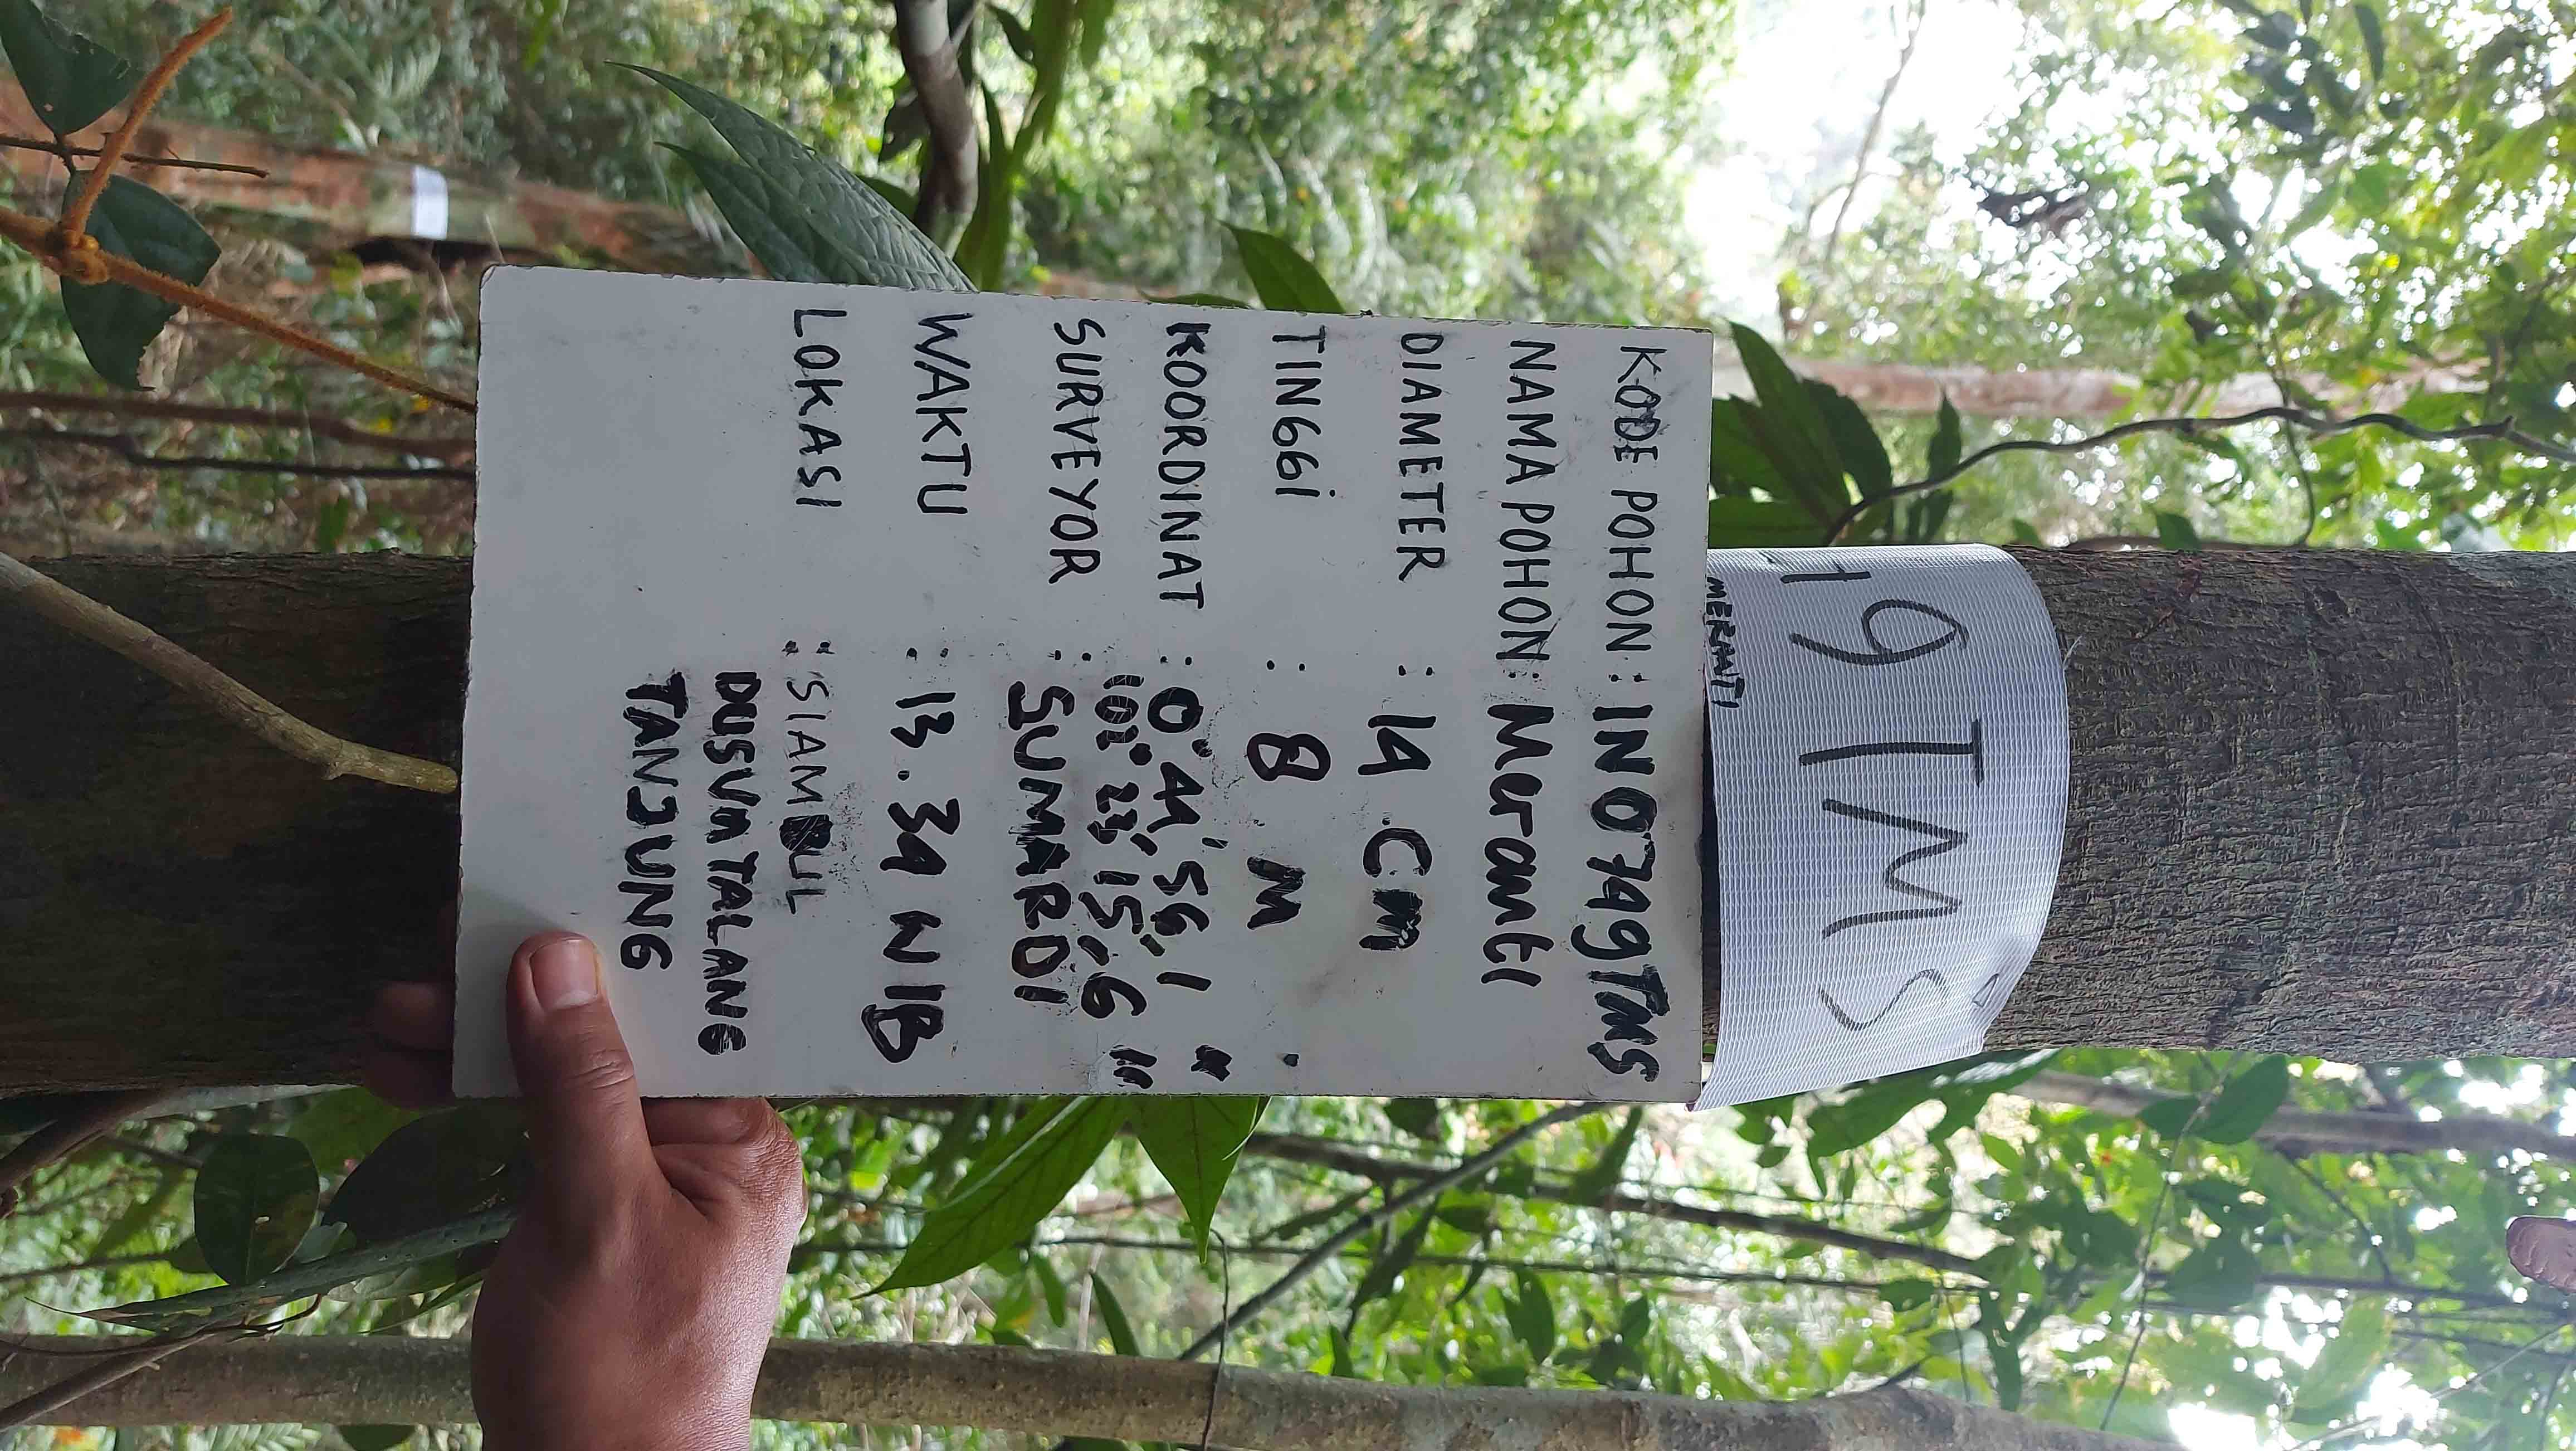 49TMS
MERANTI
KODE POHON : IN0749TMS
NAMA POHON : Meranti
DIAMETER : 14 Cm
TINGGi : 8 M
KOORDINAT : 0° 44' 56,1"
102° 23' 15,6"
SURVEYOR : SUMARDI
WAKTU : 13.34 WIB
LOKASI : SIAMBUL
DUSUn TALANG
TANJUNG